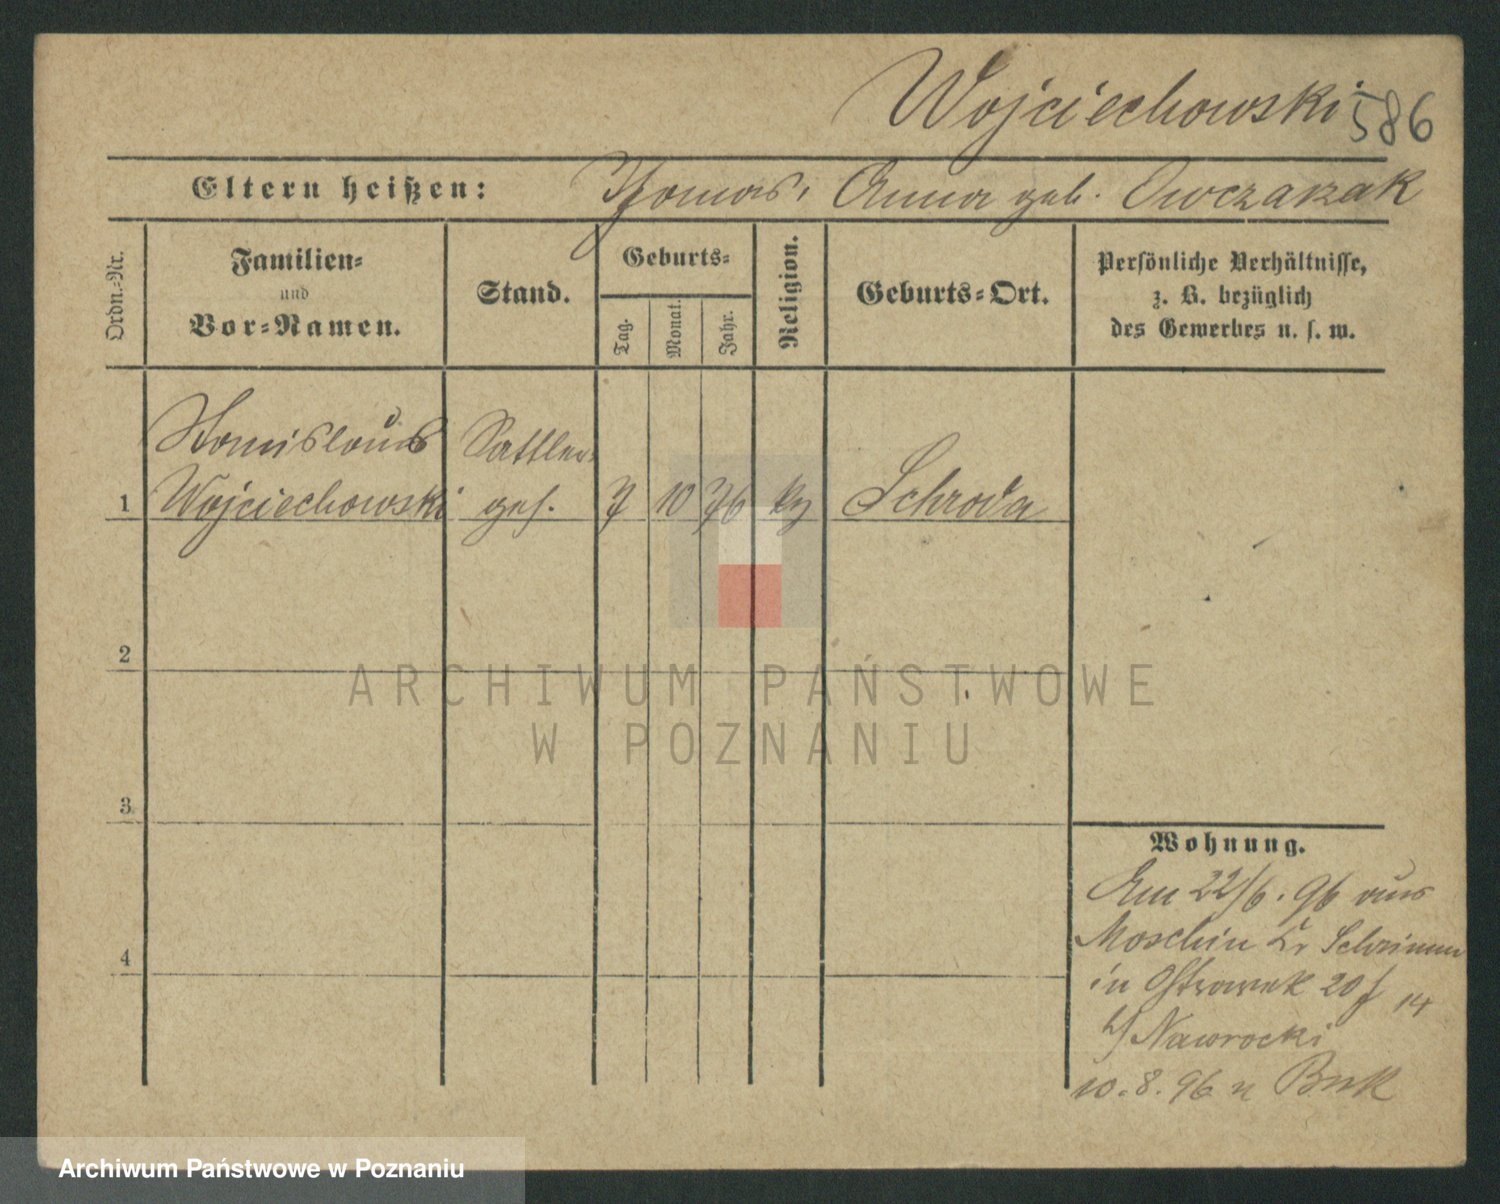 Wojciechowski 586
Eltern heißen: Thomas, Anna geb. Owczarzak
Ordn.-Nr.
Familien-
und
Vor-Namen.
Stand.
Geburts-
Tag.
Monat.
Jahr.
Religion.
Geburts-Ort.
Persönliche Verhältnisse,
z. B. bezüglich
des Gewerbes u. s. w.
Stanislaus Sattler-
1 Wojciechowski ges. 7 10 76 Schroda
2
ARCHIWUM PAŃSTWOWE
W POZNANIU
3
Wohnung.
Am 22/6. 96 aus
Moschin Kr Schrimm
4
in Ostrowek 20 14
b/ Nawrocki
10. 8. 96 n Buk
Archiwum Państwowe w Poznaniu